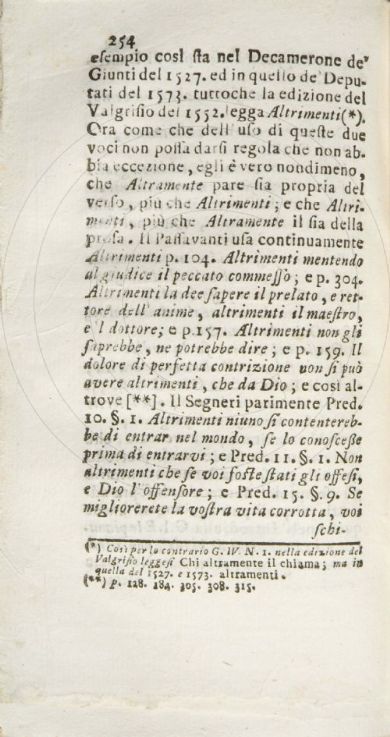 254
esempio così sta nel Decamerone de'
Giunti del 1527. ed in quello de' Depu-
tati del 1573. tuttochè la edizione del
Valgrisio del 1552. legga Altrimenti (*).
Ora come che dell' uso di queste due
voci non possa darsi regola che non ab-
bia eccezione, egli è vero nondimeno,
che Altramente pare sia propria del
verso, più che Altrimenti; e che Altri-
menti, più che Altramente il sia della
prosa. Il Passavanti usa continuamente
Altrimenti p. 104. Altrimenti mentendo
al giudice il peccato commesso; e p. 304.
Altrimenti la dee sapere il prelato, e ret-
tore dell' anime, altrimenti il maestro,
e 'l dottore; e p. 157. Altrimenti non gli
saprebbe, ne potrebbe dire; e p. 159. Il
dolore di perfetta contrizione non si può
avere altrimenti, che da Dio; e così al-
trove [**]. Il Segneri parimente Pred.
10. §. 1. Altrimenti niuno si contentereb-
be di entrar nel mondo, se lo conoscesse
prima di entrarvi; e Pred. 11. §. 1. Non
altrimenti che se voi foste stati gli offesi,
e Dio l'offensore; e Pred. 15. §. 9. Se
migliorerete la vostra vita corrotta, voi
schi-
(*) Così per lo contrario G. IV. N. 1. nella edizione del
Valgrisio leggesi Chi altramente il chiama; ma in
quella del 1527. e 1573. altramenti.
(**) p. 128. 184. 305. 308. 315.